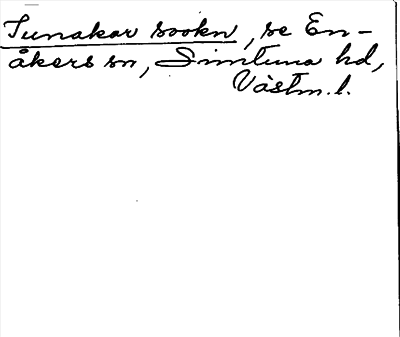 Tunakar sookn, se En-
åkers sn, Simtuna hd,
Västm. l.